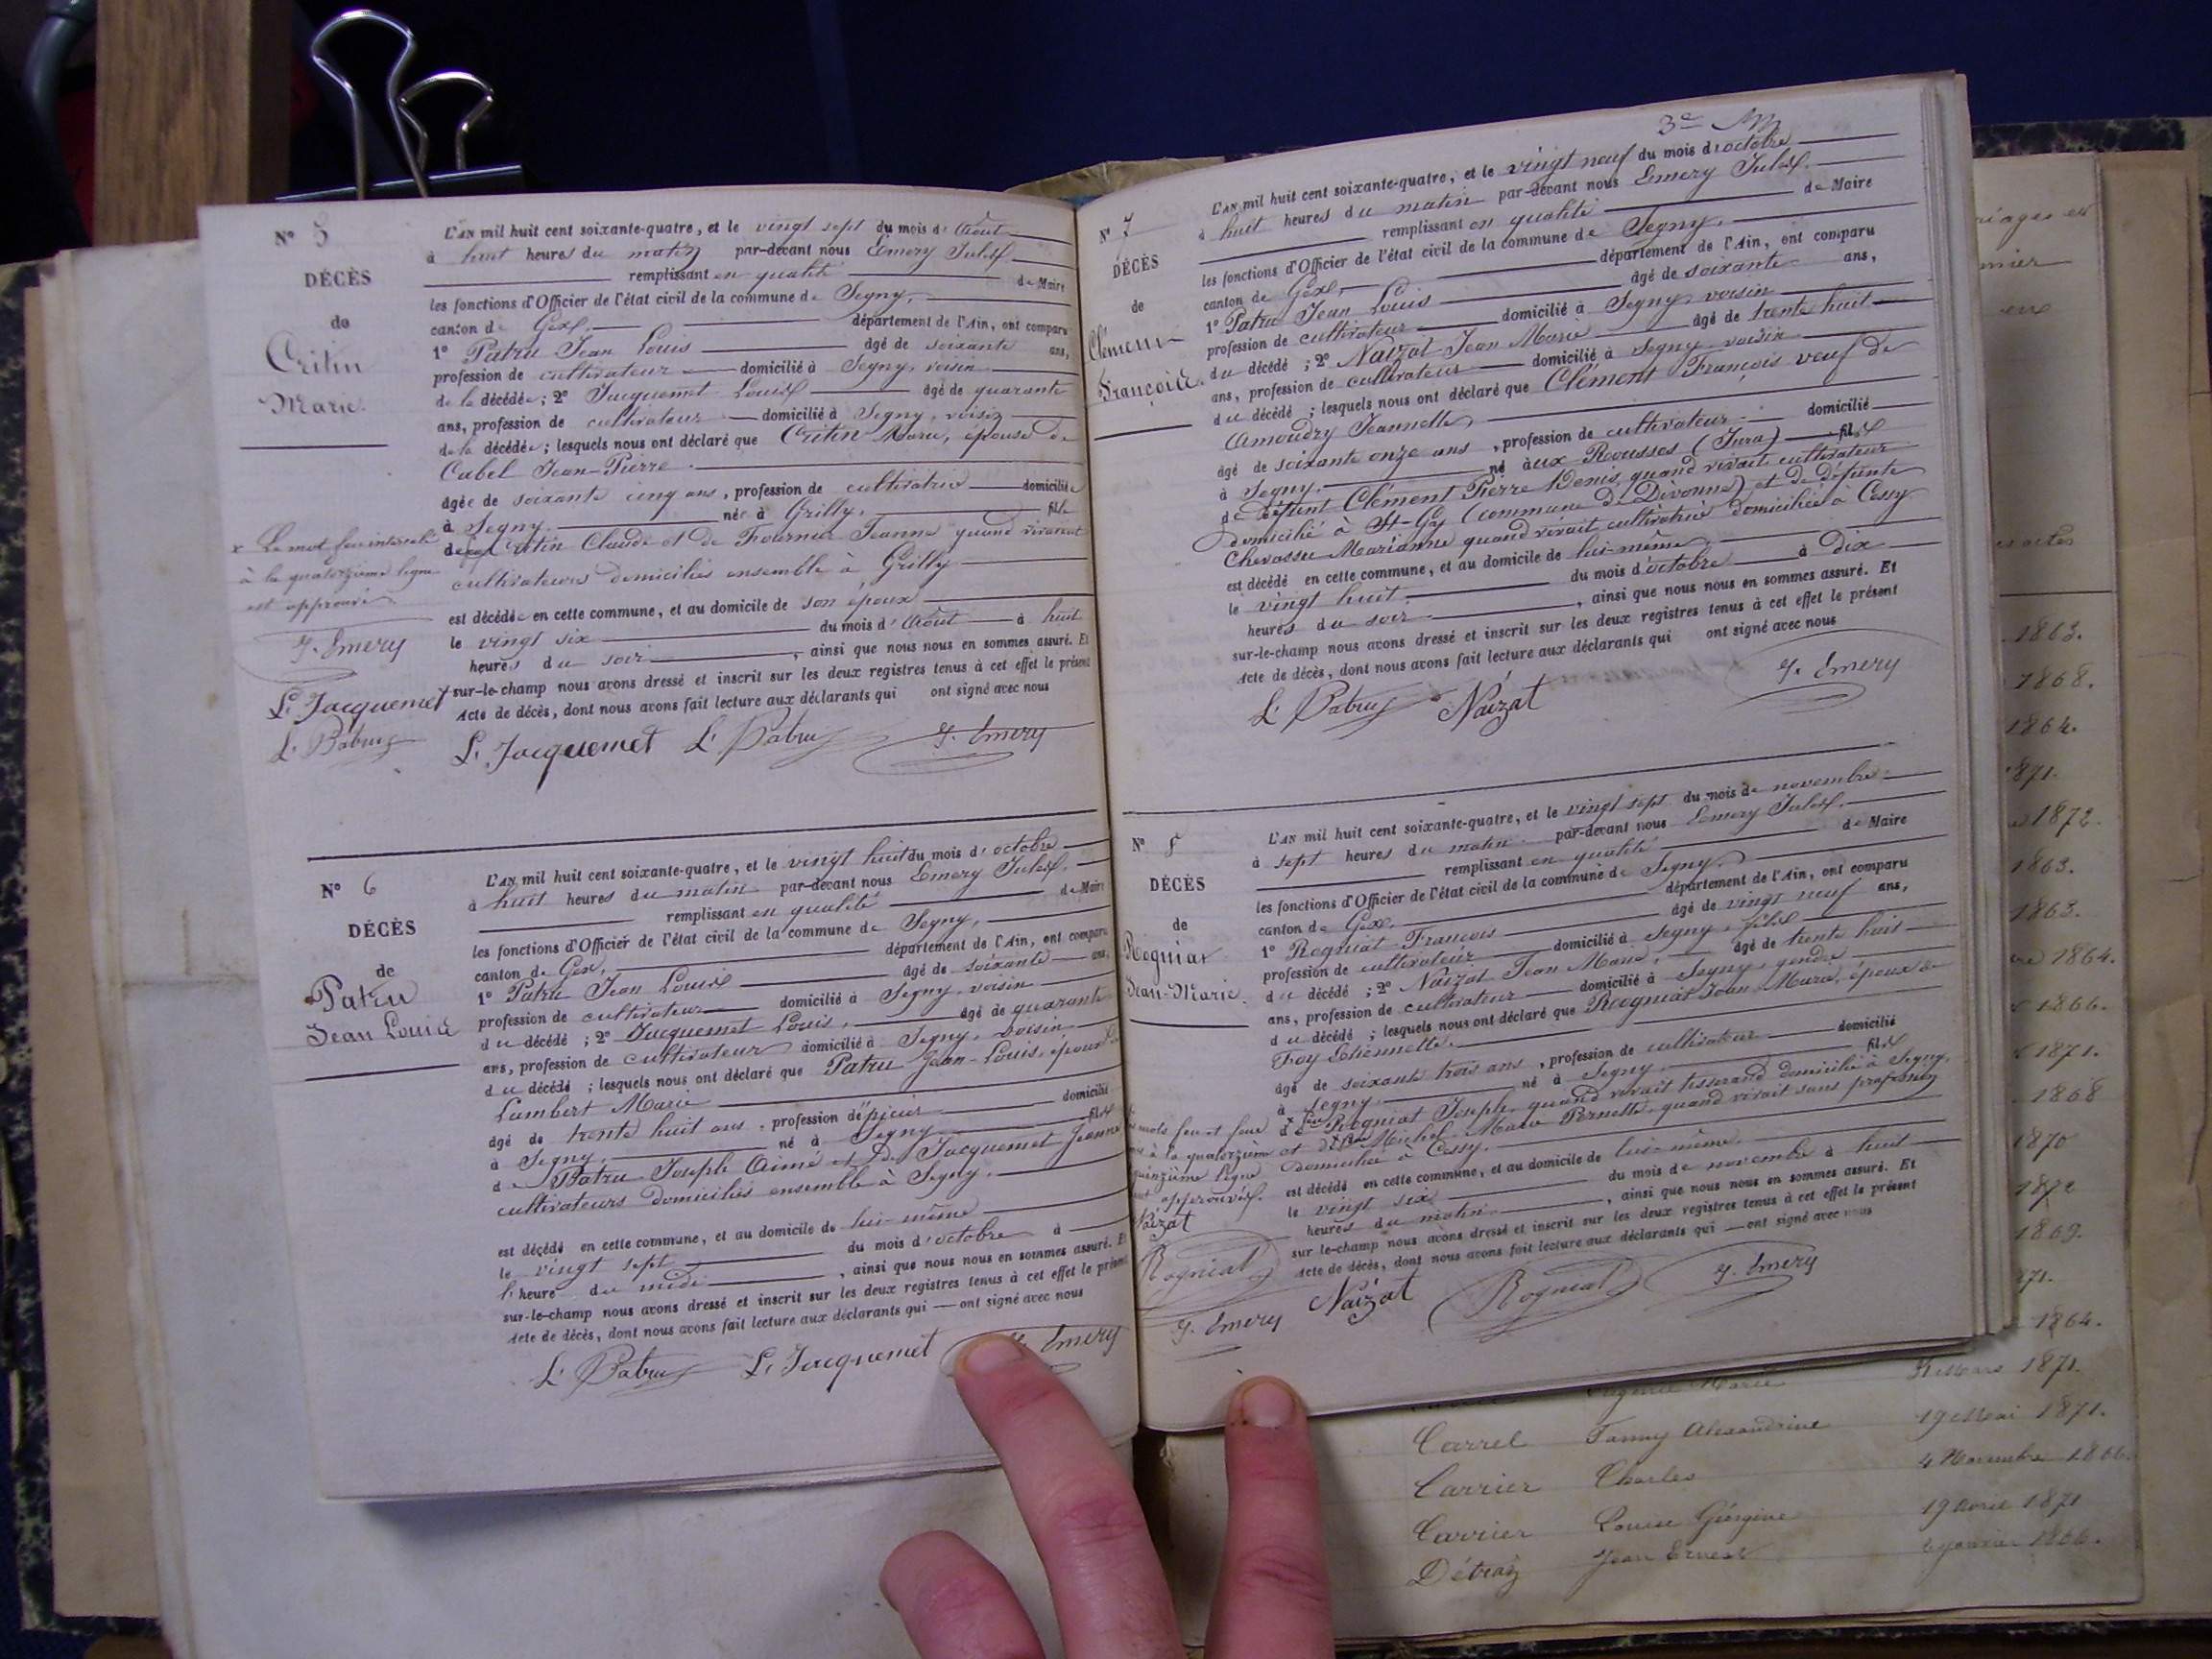 N° 5
DÉCÈS
de
Critin
Marie.
L'AN mil huit cent soixante-quatre, et le vingt sept du mois d'Août
à huit heures du matin par-devant nous Emery Jules
remplissant en qualité de Maire
les fonctions d'Officier de l'état civil de la commune de Segny,
canton de Gex, département de l'Ain, ont comparu
1° Patru Jean Louis âgé de soixante ans,
profession de cultivateur domicilié à Segny, voisin
de la décédée; 2° Jacquemet Louis âgé de quarante
ans, profession de cultivateur domicilié à Segny, voisin
de la décédée; lesquels nous ont déclaré que Critin Marie, épouse de
Cabel Jean-Pierre.
âgée de soixante cinq ans, profession de cultivatrice domiciliée
à Segny. née à Grilly, fille
de feu Critin Claude et de Fournier Jeanne quand vivaient
cultivateurs domiciliés ensemble à Grilly
est décédée en cette commune, et au domicile de son époux
le vingt six du mois d'Août à huit
heures du soir, ainsi que nous nous en sommes assuré. Et
sur-le-champ nous avons dressé et inscrit sur les deux registres tenus à cet effet le présent
Acte de décès, dont nous avons fait lecture aux déclarants qui ont signé avec nous
x Le mot feu intercalé
à la quatorzième ligne
est approuvé
J. Emery
L. Jacquemet
L. Patru
L. Jacquemet L. Patru J. Emery
N° 6
DÉCÈS
de
Patru
Jean Louis
L'AN mil huit cent soixante-quatre, et le vingt huit du mois d'octobre
à huit heures du matin par-devant nous Emery Jules,
remplissant en qualité de Maire
les fonctions d'Officier de l'état civil de la commune de Segny,
canton de Gex, département de l'Ain, ont comparu
1° Patru Jean Louis âgé de soixante ans,
profession de cultivateur domicilié à Segny, voisin
du décédé; 2° Jacquemet Louis, âgé de quarante
ans, profession de cultivateur domicilié à Segny, voisin
du décédé; lesquels nous ont déclaré que Patru Jean-Louis, époux de
Lambert Marie
âgé de trente huit ans, profession d'épicier domicilié
à Segny, né à Segny fils
de Patru Joseph Aimé et de Jacquemet Jeanne
cultivateurs domiciliés ensemble à Segny.
est décédé en cette commune, et au domicile de lui-même
le vingt sept du mois d'octobre à
l'heure du midi, ainsi que nous nous en sommes assuré. Et
sur-le-champ nous avons dressé et inscrit sur les deux registres tenus à cet effet le présent
Acte de décès, dont nous avons fait lecture aux déclarants qui ont signé avec nous
L. Patru L. Jacquemet Emery
3e
N° 7
DÉCÈS
de
Clément
François.
L'AN mil huit cent soixante-quatre, et le vingt neuf du mois d'octobre
à huit heures du matin par-devant nous Emery Jules.
remplissant en qualité de Maire
les fonctions d'Officier de l'état civil de la commune de Segny,
canton de Gex, département de l'Ain, ont comparu
1° Patru Jean Louis âgé de soixante ans,
profession de cultivateur domicilié à Segny, voisin
du décédé; 2° Naizat Jean Marie âgé de trente huit
ans, profession de cultivateur domicilié à Segny voisin
du décédé; lesquels nous ont déclaré que Clément François veuf de
Amoudry Jeannette
âgé de soixante onze ans, profession de cultivateur domicilié
à Segny. né aux Rousses (Jura) fils
de défunt Clément Pierre Denis, quand vivait cultivateur
domicilié à St-Gix (commune de Divonne) et de défunte
Chevassu Marianne quand vivait cultivatrice domiciliée à Cessy
est décédé en cette commune, et au domicile de lui-même,
le vingt huit. du mois d'octobre à dix
heures du soir, ainsi que nous nous en sommes assuré. Et
sur-le-champ nous avons dressé et inscrit sur les deux registres tenus à cet effet le présent
Acte de décès, dont nous avons fait lecture aux déclarants qui ont signé avec nous
L. Patru Naizat J. Emery
N° 8
DÉCÈS
de
Rogniat
Jean-Marie.
L'AN mil huit cent soixante-quatre, et le vingt sept du mois de novembre
à sept heures du matin par-devant nous Emery Jules.
remplissant en qualité de Maire
les fonctions d'Officier de l'état civil de la commune de Segny.
canton de Gex. département de l'Ain, ont comparu
1° Rogniat François âgé de vingt neuf ans,
profession de cultivateur domicilié à Segny, fils
du décédé; 2° Naizat Jean Marie, âgé de trente huit
ans, profession de cultivateur domicilié à Segny, gendre
du décédé; lesquels nous ont déclaré que Rogniat Jean Marie, époux de
Foy Etiennette.
âgé de soixante trois ans, profession de cultivateur domicilié
à Segny. né à Segny fils
de feu Rogniat Joseph quand vivait tisserand domicilié à Segny,
et de feue Michel Marie Pernette, quand vivait sans profession
domiciliée à Cessy.
est décédé en cette commune, et au domicile de lui-même.
le vingt six du mois de novembre à huit
heures du matin, ainsi que nous nous en sommes assuré. Et
sur le-champ nous avons dressé et inscrit sur les deux registres tenus à cet effet le présent
Acte de décès, dont nous avons fait lecture aux déclarants qui ont signé avec nous
mots feu et feue
à la quatorzième et
quinzième ligne
approuvés.
Naizat
Rogniat
J. Emery
Naizat Rogniat J. Emery
1863.
1868.
1864.
1871.
1872.
1863.
1863.
1864.
1866.
1871.
1868
1870
1872
1869.
1864.
Mars 1871.
Carrel Fanny Alexandrine 19 Mai 1871.
Carrier Charles 4 Novembre 1866.
Carrier Louise Géorgine 19 Avril 1871
Détraz Jean Ernest Janvier 1866.